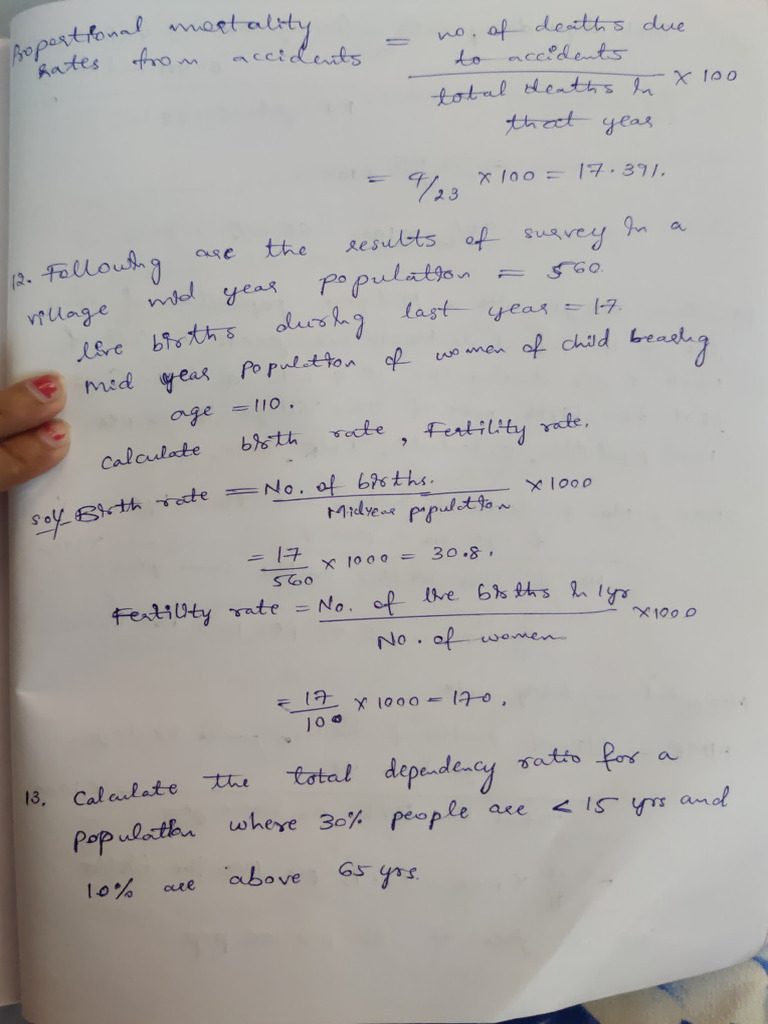 Propostional mortality
rates from accidents = no. of deaths due
to accidents
total deaths in × 100
that year
= 4/23 × 100 = 17.391.
12. Following are the results of survey in a
village mid year population = 560.
live births during last year = 17.
Mid year population of women of child bearing
age = 110.
Calculate birth rate, Fertility rate.
Sol/ Birth rate = No. of births. × 1000
Midyear population
= 17 × 1000 = 30.8.
560
Fertility rate = No. of live births in 1yr ×1000
No. of women
= 17 × 1000 = 170.
100
13. Calculate the total dependency ratio for a
population where 30% people are < 15 yrs and
10% are above 65 yrs.